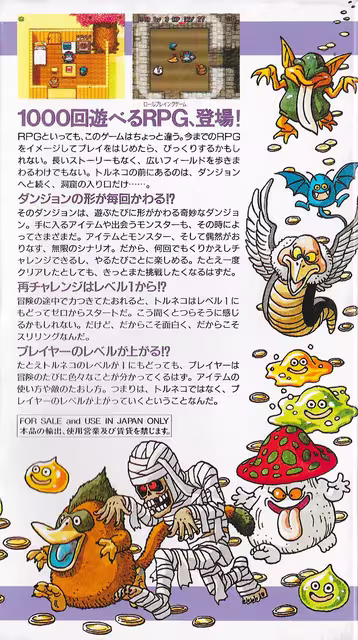 ロールプレイングゲーム
1000回遊べるRPG、登場!
RPGといっても、このゲームはちょっと違う。今までのRPG
をイメージしてプレイをはじめたら、びっくりするかもし
れない。長いストーリーもなく、広いフィールドを歩きま
わるわけでもない。トルネコの前にあるのは、ダンジョン
へと続く、洞窟の入り口だけ……。
ダンジョンの形が毎回かわる!?
そのダンジョンは、遊ぶたびに形がかわる奇妙なダンジョ
ン。手に入るアイテムや出会うモンスターも、その時によ
ってさまざまだ。アイテムとモンスター、そして偶然がお
りなす、無限のシナリオ。だから、何回でもくりかえしチ
ャレンジできるし、やるたびごとに楽しめる。たとえ一度
クリアしたとしても、きっとまた挑戦したくなるはずだ。
再チャレンジはレベル1から!?
冒険の途中で力つきてたおれると、トルネコはレベル1に
もどってゼロからスタートだ。こう聞くとつらそうに感じ
るかもしれない。だけど、だからこそ面白く、だからこそ
スリリングなんだ。
プレイヤーのレベルが上がる!?
たとえトルネコがレベル1にもどっても、プレイヤーは
冒険のたびに色々なことが分かってくるはず。アイテムの
使い方や敵のたおし方。つまりは、トルネコではなく、プ
レイヤーのレベルが上がっていくということなんだ。
FOR SALE and USE IN JAPAN ONLY
本品の輸出、使用営業及び賃貸を禁じます。